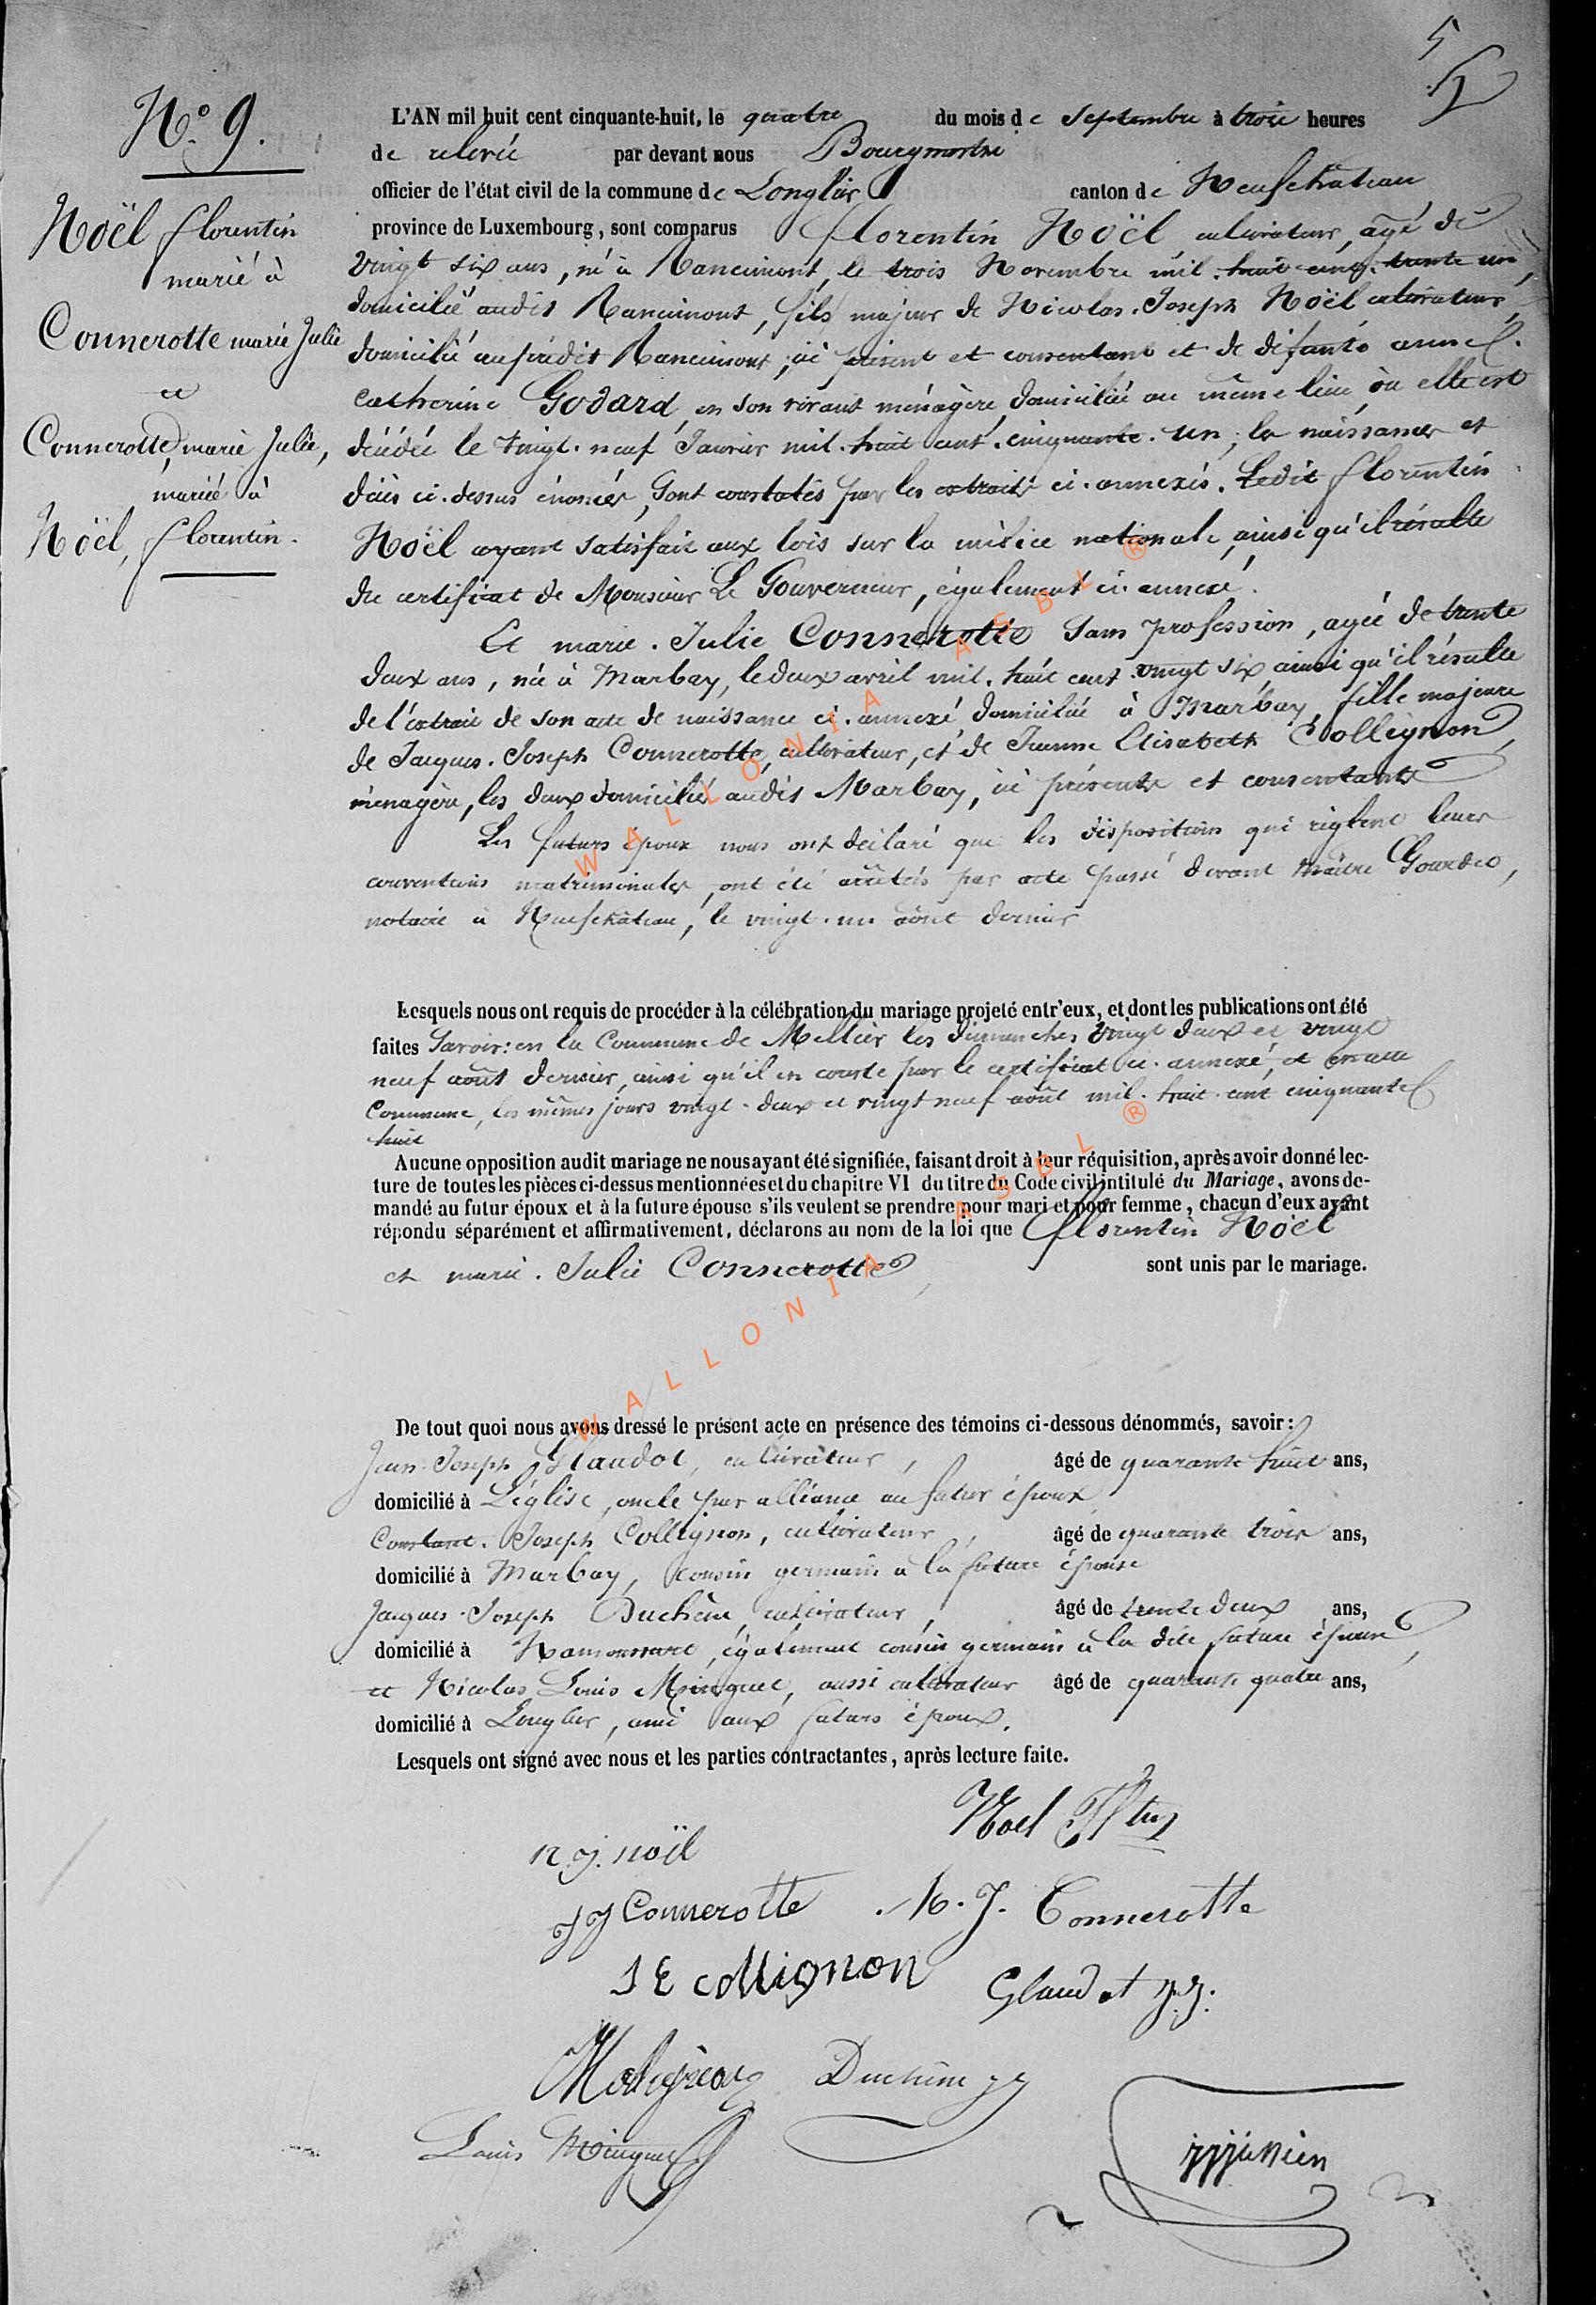 5
5
N.° 9.
Noël florentin
marié à
Connerotte marie Julie
et
Connerotte, marie Julie,
mariée à
Noël, florentin.
L'AN mil huit cent cinquante-huit, le quatre du mois de Septembre à trois heures
de relevée par devant nous Bourgmestre
officier de l'état civil de la commune de Longlier canton de Neufchateau
province de Luxembourg, sont comparus florentin Noël cultivateur, âgé de
vingt six ans, né à Rancimont, le trois Novembre mil. huit cent. trente un,
domicilié audit Rancimont, fils majeur de Nicolas. Joseph Noël cultivateur,
domicilié au prédit Rancimont, ici présent et consentant et de défunte anne
catherine Godard, en son vivant ménagère, domiciliée au même lieu, où elle est
décédée le vingt. neuf Janvier mil. huit cent. cinquante. un; la naissance et
décès ci. dessus énoncés, sont constatés par les extraits ci. annexés. Ledit florentin
Noël ayant satisfait aux lois sur la milice nationale, ainsi qu'il résulte
du certificat de Monsieur Le Gouverneur, également ci. annexé.
Et marie. Julie Connerotte Sans profession, agée de trente
deux ans, née à Marbay, le deux avril mil. huit cent vingt six, ainsi qu'il résulte
de l'extrait de son acte de naissance ci. annexé domiciliée à Marbay, fille majeure
de Jacques. Joseph Connerotte, cultivateur, et de Jeanne Elisabeth Collignon,
ménagère, les deux domiciliés audit Marbay, ici présents et consentants
Les futurs époux nous ont déclaré que les dispositions qui règlent leurs
conventions matrimoniales, ont été arrêtées par acte passé devant Maître
notaire à Neufchâteau, le vingt. un août dernier
Lesquels nous ont requis de procéder à la célébration du mariage projeté entr'eux, et dont les publications ont été
faites Savoir: en la Commune de Mellier les dimanches vingt deux et vingt
neuf août dernier, ainsi qu'il en conste par le certificat ci. annexé, et en cette
Commune, les mêmes jours vingt. deux et vingt neuf août mil. huit. cent cinquante
huit
Aucune opposition audit mariage ne nous ayant été signifiée, faisant droit à leur réquisition, après avoir donné lec-
ture de toutes les pièces ci-dessus mentionnées et du chapitre VI du titre du Code civil intitulé du Mariage, avons de-
mandé au futur époux et à la future épouse s'ils veulent se prendre pour mari et pour femme, chacun d'eux ayant
répondu séparément et affirmativement, déclarons au nom de la loi que florentin Noël
et marie. Julie Connerotte sont unis par le mariage.
De tout quoi nous avons dressé le présent acte en présence des témoins ci-dessous dénommés, savoir:
Jean. Joseph Glaudot, cultivateur, âgé de quarante huit ans,
domicilié à Léglise, oncle par alliance au futur époux
Constant. Joseph Collignon, cultivateur, âgé de quarante trois ans,
domicilié à Marbay, cousin germain à la future épouse
Jacques. Joseph Duchêne, cultivateur, âgé de trente deux ans,
domicilié à également cousin germain à la dite future épouse,
et Nicolas Louis Minguet, aussi cultivateur âgé de quarante quatre ans,
domicilié à Longlier, ami aux futurs époux.
Lesquels ont signé avec nous et les parties contractantes, après lecture faite.
Noel
n. j. noël
J J Connerotte M. J. Connerotte
J E collignon Glaudot J. J.
Duchêne J J
Louis Minguet
WALLONIA ASBL ®
WALLONIA ASBL ®